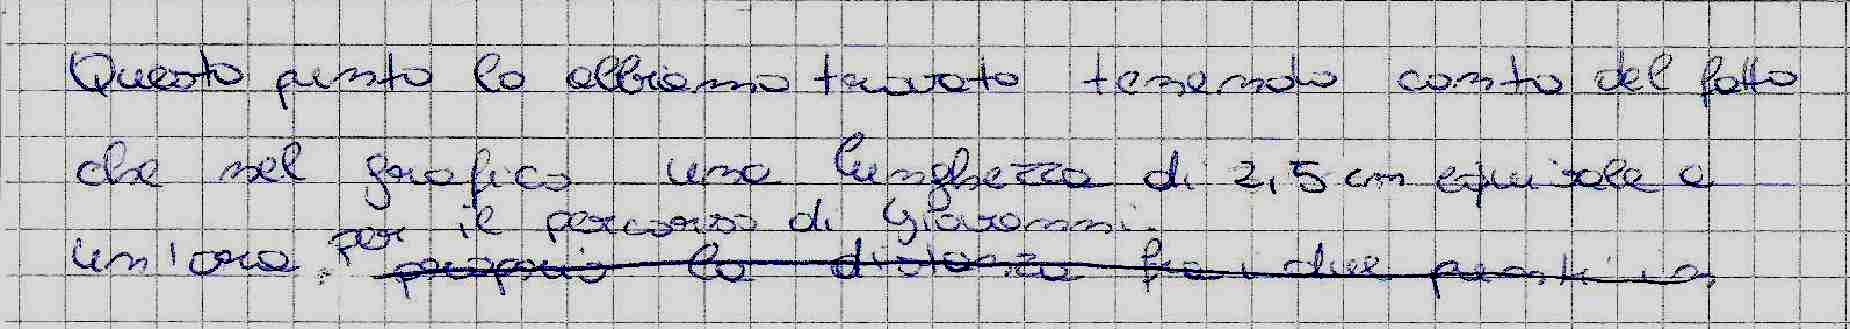 Questo punto lo abbiamo trovato tenendo conto del fatto
che nel grafico una lunghezza di 2,5 cm equivale a
un'ora. per il percorso di Giovanni.
proprio la distanza fra i due